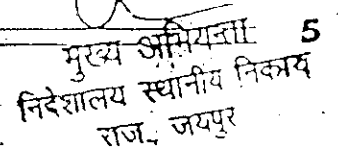 मुख्य अभियन्ता 5
निदेशालय स्थानीय निकाय
राज., जयपुर